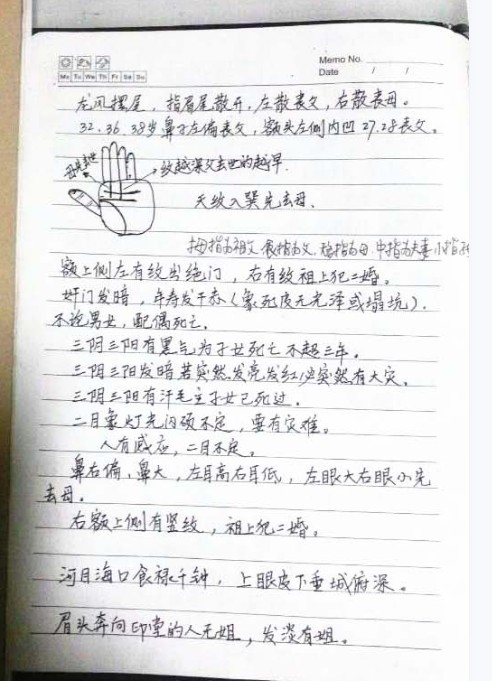 Memo No.
Mo Tu We Th Fr Sa Su
Date / /
龙凤摆尾,指眉尾散开,左散丧父,右散丧母。
32.36.38岁鼻子左偏丧父,额头左侧内凹27.28丧父。
纹越深父去世的越早
天纹入巽先去母.
拇指为祖父 食指为父, 为母 中指为夫妻 小指
额上侧左有纹出绝门,右有纹祖上犯二婚。
奸门发暗,年寿发干赤(象死皮无光泽或塌坑).
不论男女,配偶死亡.
三阴三阳有黑气为子女死亡不超三年。
三阴三阳发暗若突然发亮发红必突然有大灾。
三阴三阳有汗毛主子女已死过.
二目象灯光闪烁不定,要有灾难。
人有感应,二目不定。
鼻右偏,鼻大,左耳高右耳低,左眼大右眼小先
去母.
右额上侧有竖纹,祖上犯二婚。
河目海口食禄千钟,上眼皮下垂城府深。
眉头奔向印堂的人无姐,发淡有姐。